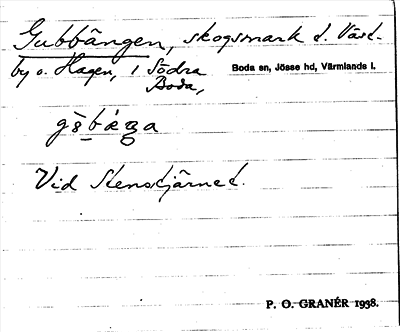 Gubbängen, skogsmark t. Väst-
by o. Hagen, i Södra Boda,
Boda sn, Jösse hd, Värmlands l.
Vid Stenstjärnet.
P. O. GRANÉR 1938.